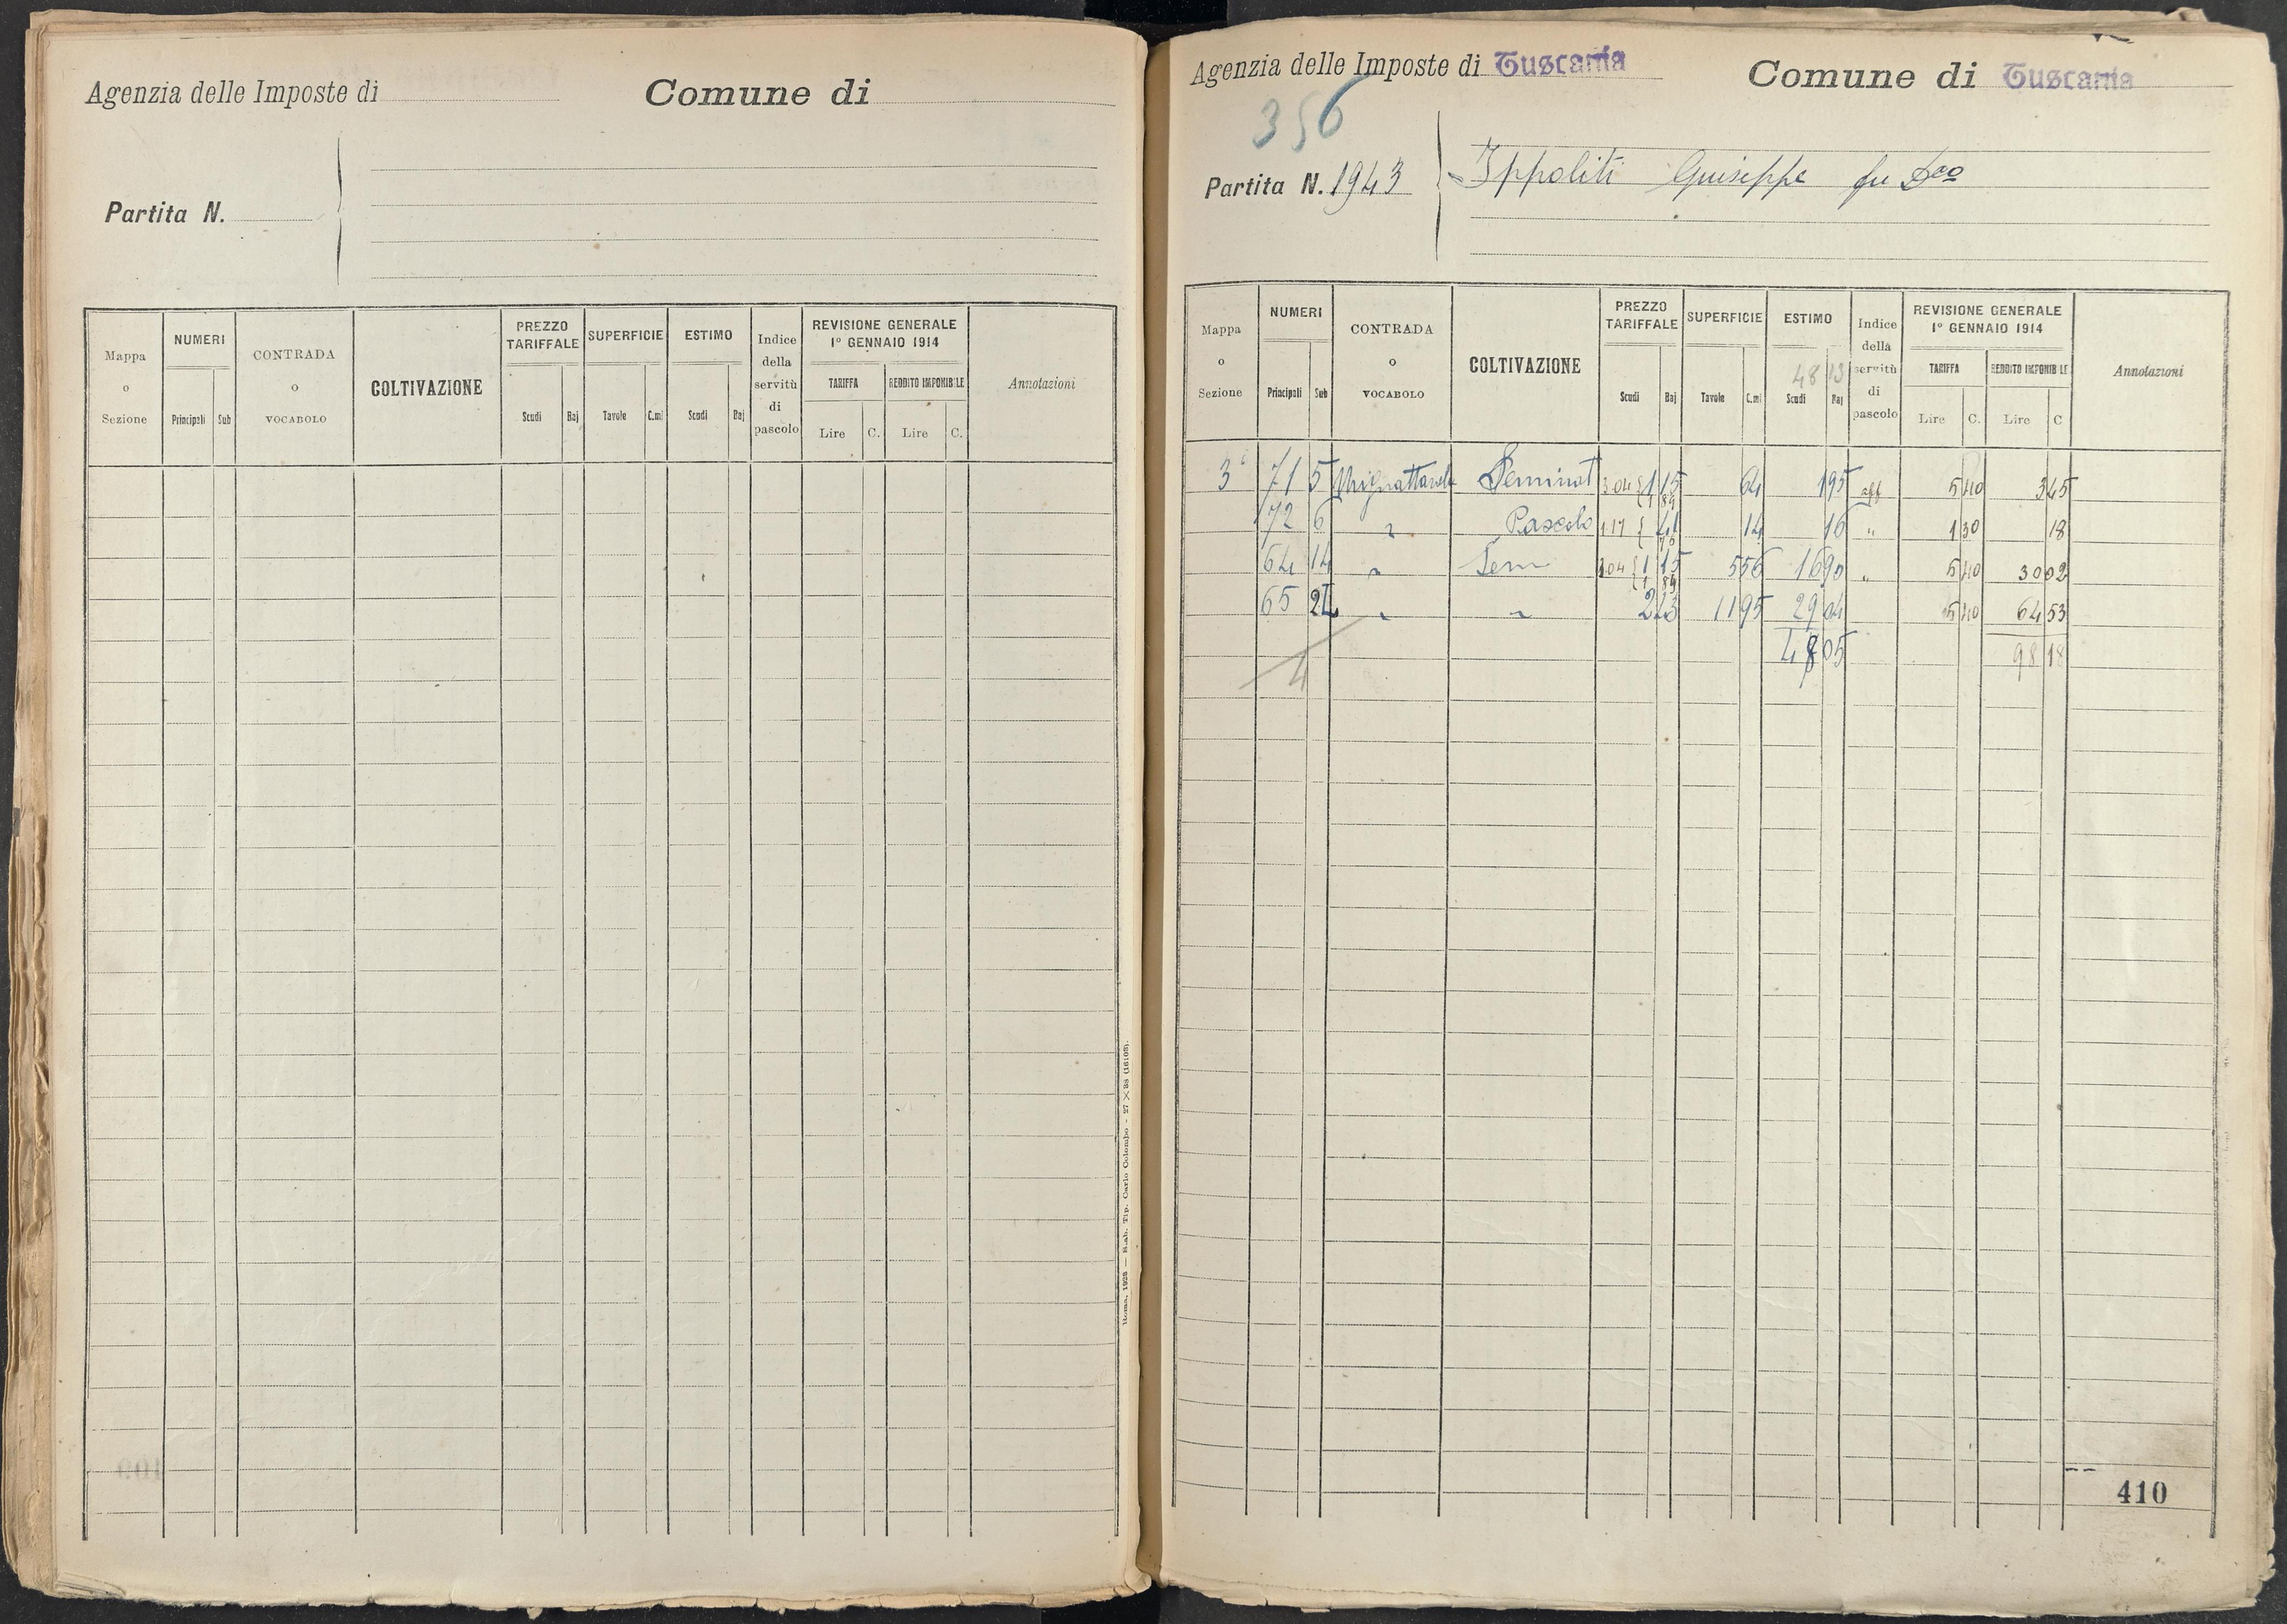 Agenzia delle Imposte di
Comune di
Partita N.
Mappa o Sezione
NUMERI
Principali Sub
CONTRADA o VOCABOLO
COLTIVAZIONE
PREZZO TARIFFALE
Scudi Baj
SUPERFICIE
Tavole C.mi
ESTIMO
Scudi Baj
Indice della servitù di pascolo
REVISIONE GENERALE
1° GENNAIO 1914
TARIFFA REDDITO IMPONIBILE
Lire C. Lire C.
Annotazioni
Roma, 1923 — Stab. Tip. Carlo Colombo - 27 × 38 (16103).
Agenzia delle Imposte di Tuscania
Comune di Tuscania
356
Partita N. 1943
Ippoliti Giuseppe fu Dco
Mappa o Sezione
NUMERI
Principali Sub
CONTRADA o VOCABOLO
COLTIVAZIONE
PREZZO TARIFFALE
Scudi Baj
SUPERFICIE
Tavole C.mi
ESTIMO
48 13
Scudi Baj
Indice della servitù di pascolo
REVISIONE GENERALE
1° GENNAIO 1914
TARIFFA REDDITO IMPONIBILE
Lire C. Lire C
Annotazioni
3 71 5 Seminat 3 04 { 1 15 1 89 64 1 95 aff 5 40 3 45
72 6 " Pascolo 1 17 { 41 14 16 " 1 30 18
64 14 " Sem 3 04 { 1 15 1 89 5 56 16 90 " 5 40 30 02
65 " " 2 43 11 95 29 04 5 40 64 53
48 05 98 18
4
410